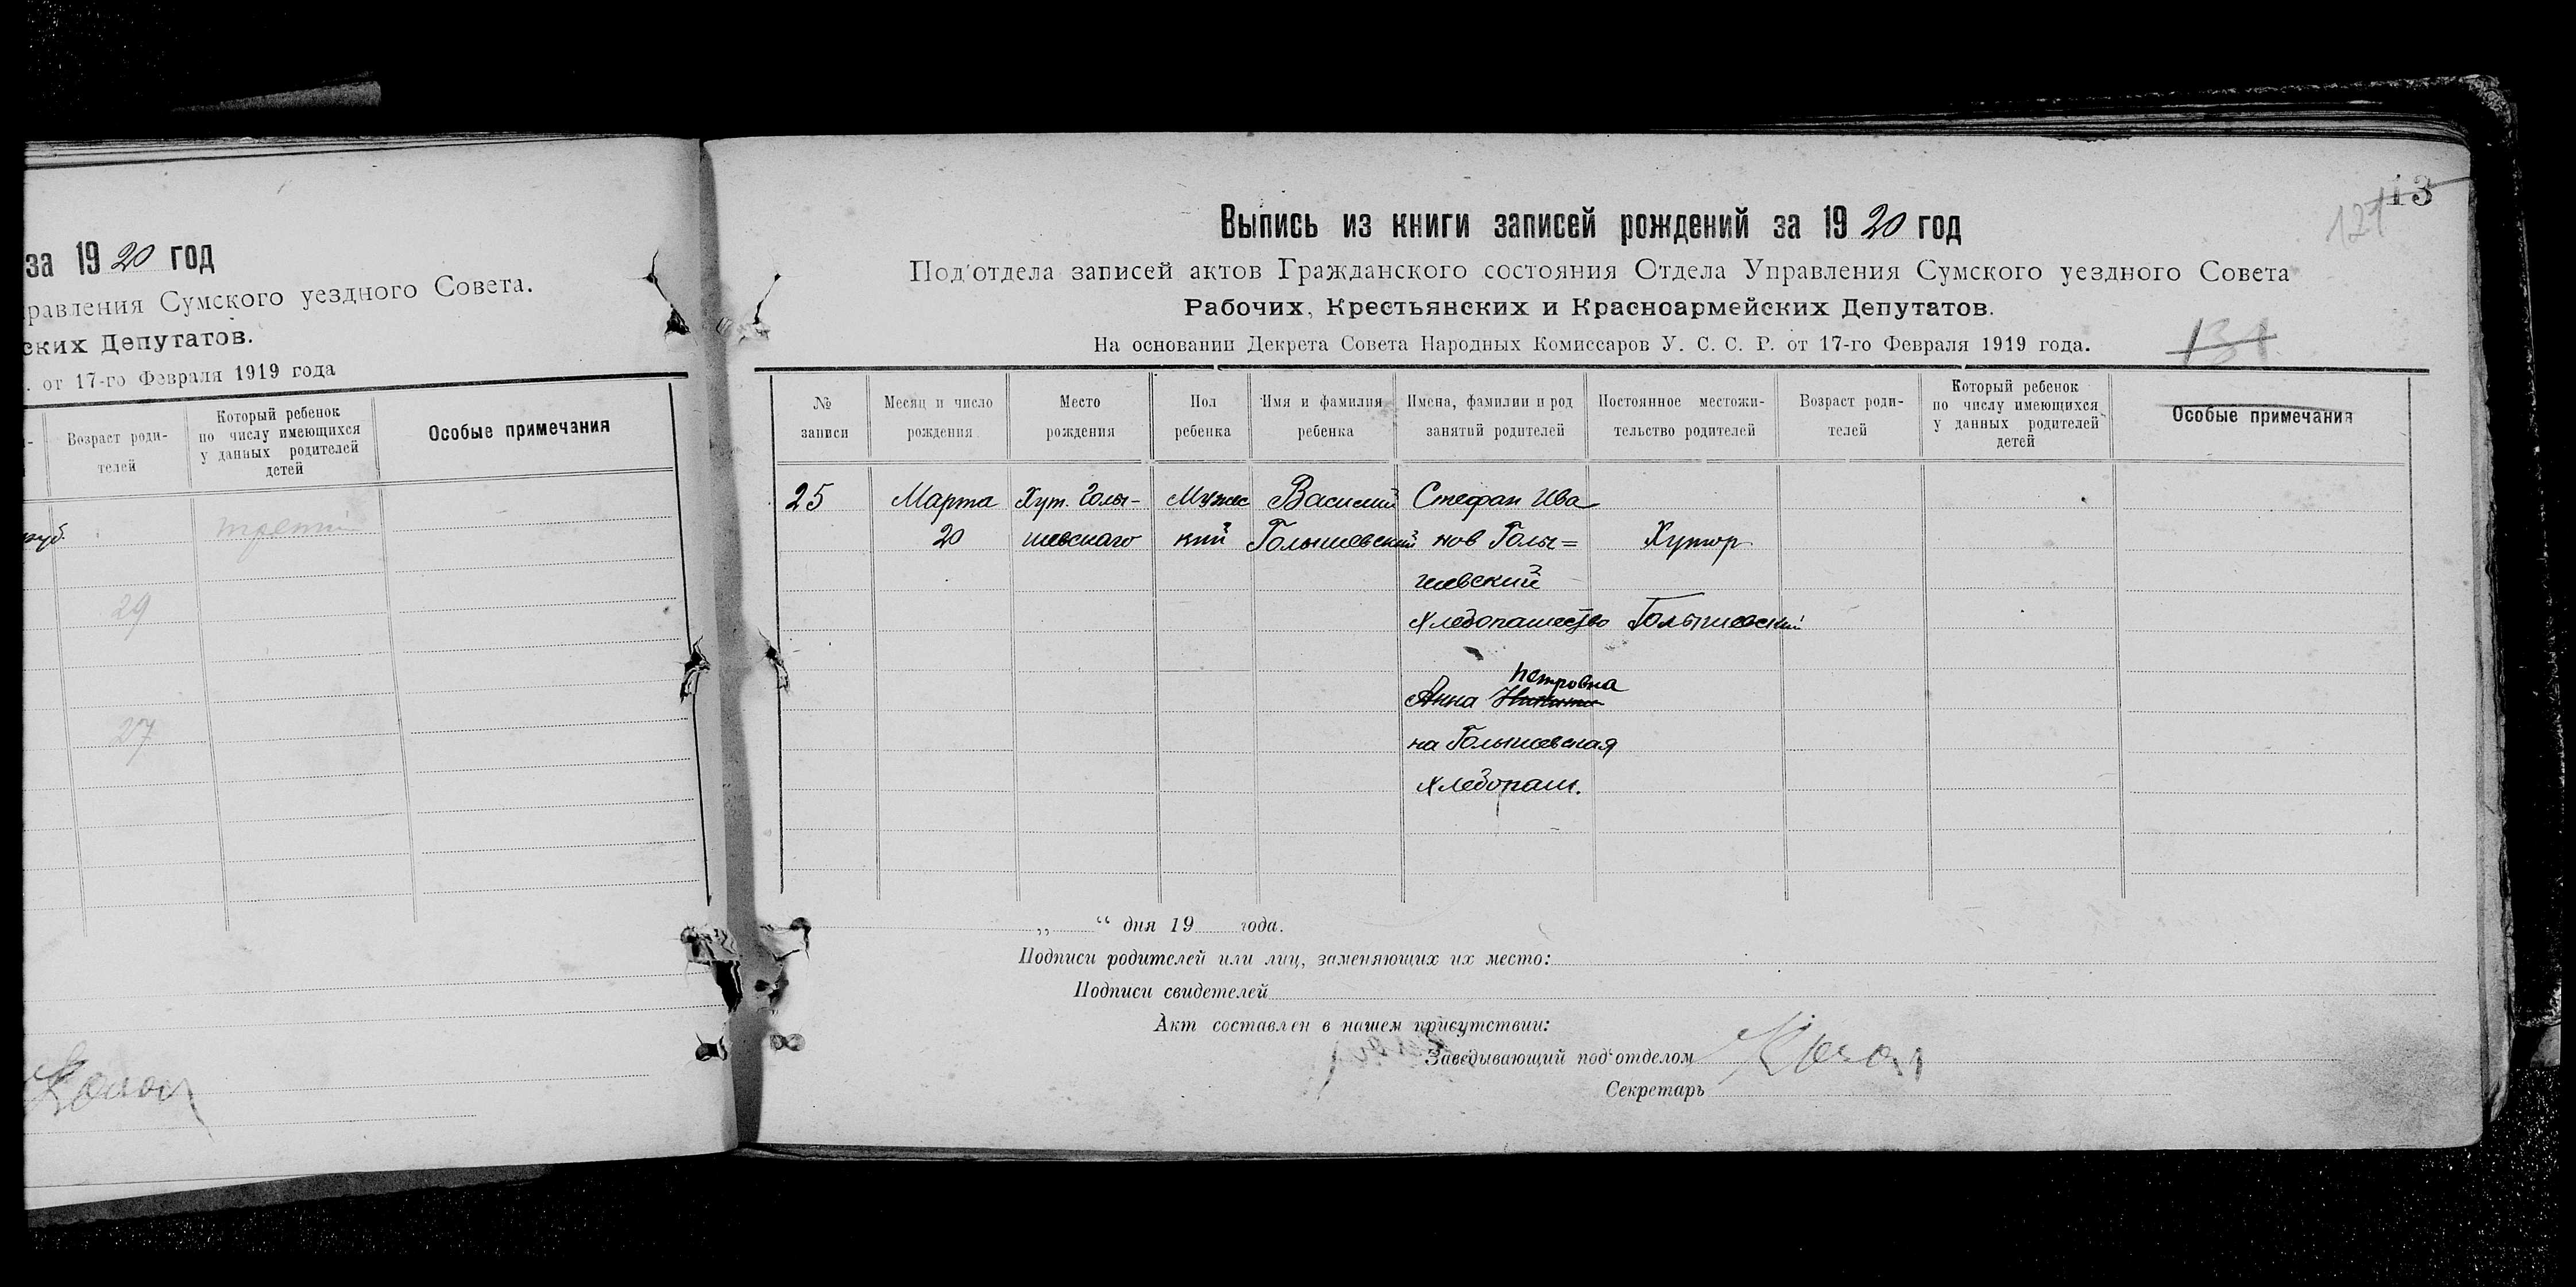 за 1920 год
равления Сумского уездного Совета.
ских Депутатов.
. от 17-го Февраля 1919 года
Возраст роди-
телей
Который ребенок
по числу имеющихся
у данных родителей
детей
Особые примечания
третий
29
27
13
121
131
Выпись из книги записей рождений за 1920 год
Под'отдела записей актов Гражданского состояния Отдела Управления Сумского уездного Совета
Рабочих, Крестьянских и Красноармейских Депутатов.
На основании Декрета Совета Народных Комиссаров У. С. С. Р. от 17-го Февраля 1919 года.
№
записи
Месяц и число
рождения
Место
рождения
Пол
ребенка
Имя и фамилия
ребенка
Имена, фамилии и род
занятий родителей
Постоянное местожи-
тельство родителей
Возраст роди-
телей
Который ребенок
по числу имеющихся
у данных родителей
детей
Особые примечания
25
Марта
20
Хут. Голы-
шевскаго
Мужс
кий
Василий
Голышевский
Стефан Ива
нов Голы=
шевский
хлебопашество
Петровна
Анна
на Голышевская
хлебопаш.
Хутор
Голышевский
„ “ дня 19 года.
Подписи родителей или лиц, заменяющих их место:
Подписи свидетелей
Акт составлен в нашем присутствии:
Заведывающий под'отделом
Секретарь